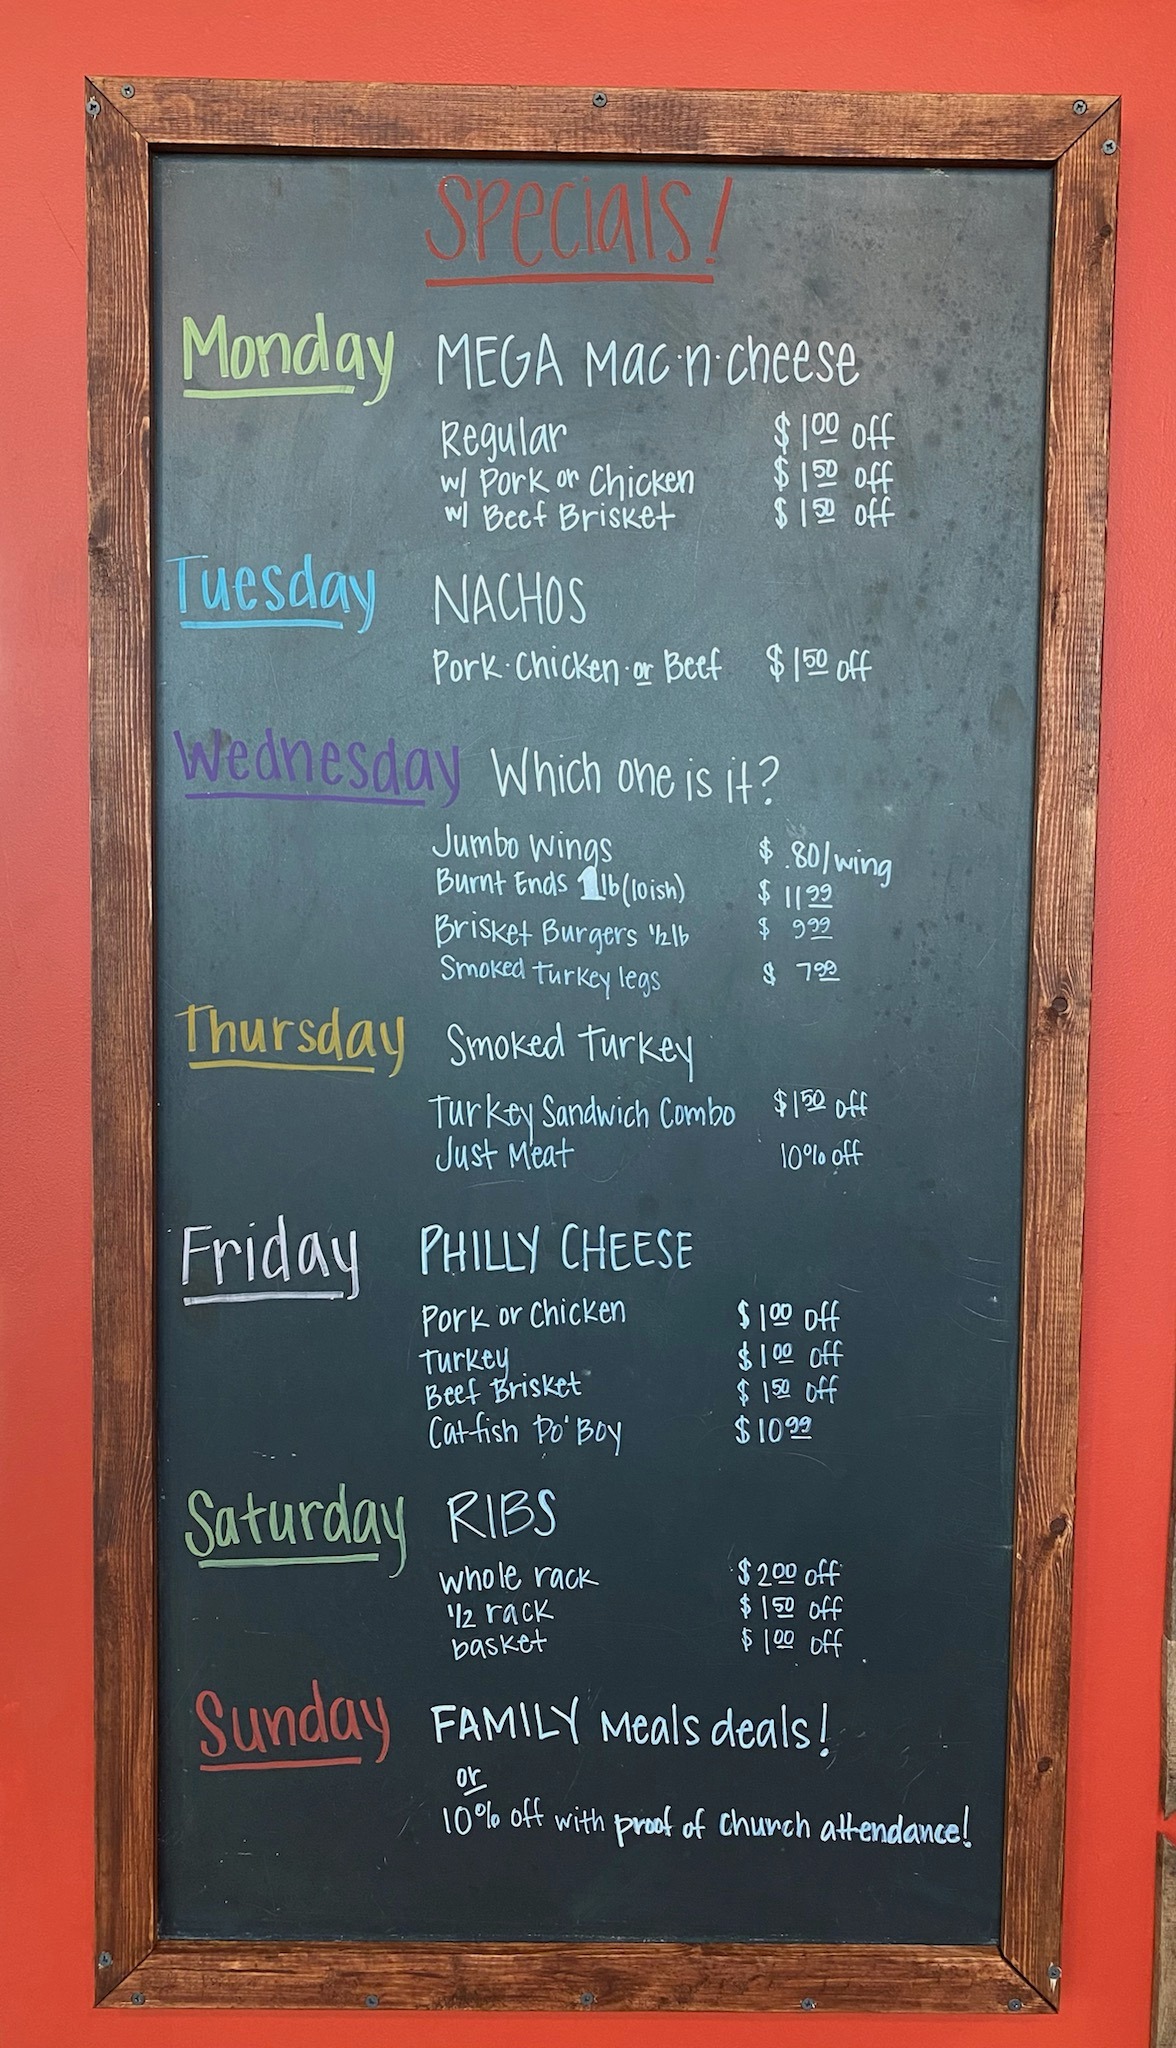 Specials!
Monday MEGA Mac·n·cheese
Regular $1.00 off
w/ Pork or Chicken $1.50 off
w/ Beef Brisket $1.50 off
Tuesday NACHOS
Pork·Chicken·or Beef $1.50 off
Wednesday Which one is it?
Jumbo Wings $ .80/wing
Burnt Ends 1lb (10ish) $ 11.99
Brisket Burgers 1/2 lb $ 9.99
Smoked Turkey legs $ 7.99
Thursday Smoked Turkey
Turkey Sandwich Combo $1.50 off
Just Meat 10% off
Friday PHILLY CHEESE
Pork or Chicken $1.00 off
Turkey $1.00 off
Beef Brisket $1.50 off
Catfish Po' Boy $10.99
Saturday RIBS
whole rack $2.00 off
1/2 rack $1.50 off
basket $1.00 off
Sunday FAMILY Meals deals!
or
10% off with proof of church attendance!